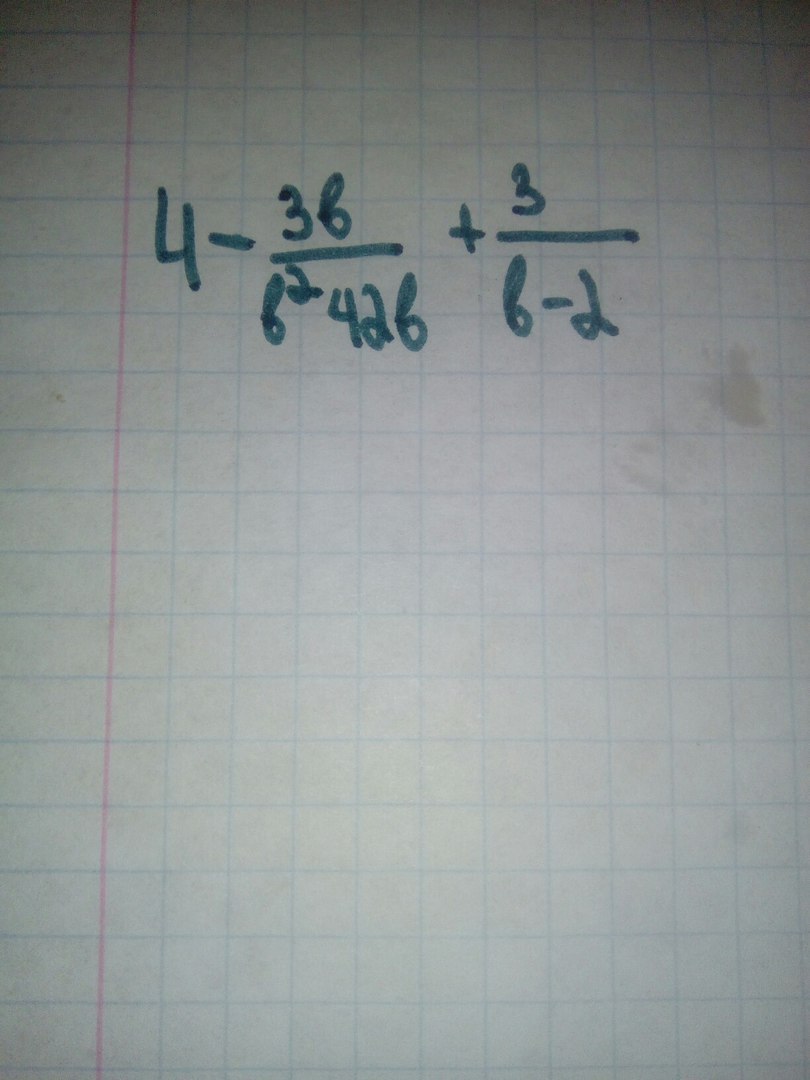 4 - 3в / в² 42в + 3 / в - 2